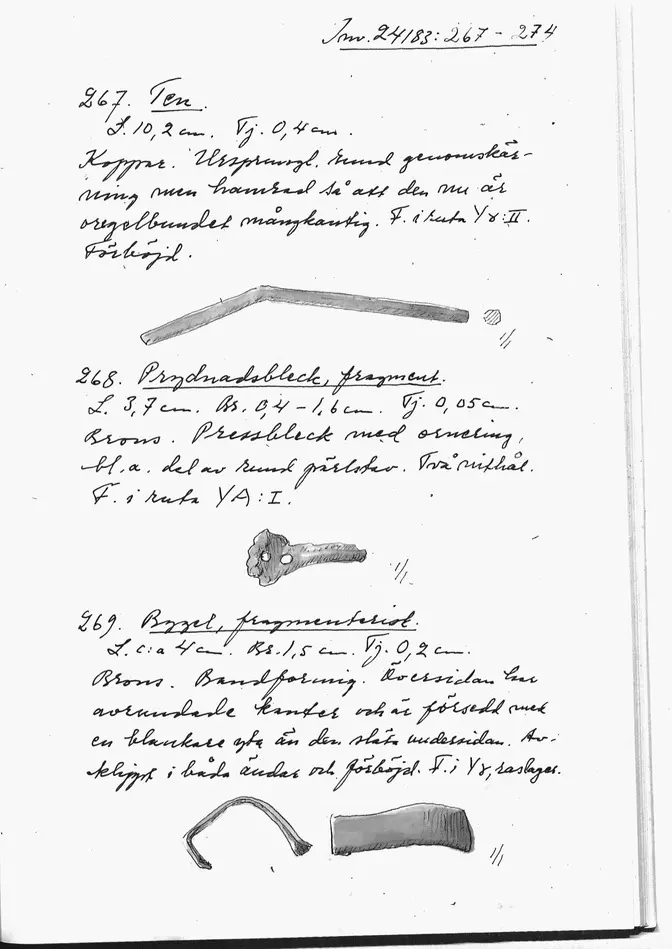 Inv. 24183: 267 - 274
267. Ten.
L. 10,2 cm. Tj. 0,4 cm.
Koppar. Ursprungl. rund genomskär-
ning men hamrad så att den nu är
oregelbundet mångkantig. F. i ruta Yx:II.
Förböjd.
1/1
268. Prydnadsbleck, fragment.
L. 3,7 cm. Br. 0,4 - 1,6 cm. Tj. 0,05 cm.
Brons. Pressbleck med ornering,
bl.a. del av rund pärlstav. Två nithål.
F. i ruta YA: I.
1/1
269. Bygel, fragmenterisk.
L. c:a 4 cm. Br. 1,5 cm. Tj. 0,2 cm.
Brons. Bandformig. Översidan har
avrundade kanter och är försedd med
en blankare yta än den släta undersidan. Av-
klippt i båda ändar och förböjd. F. i Yx, raslager.
1/1